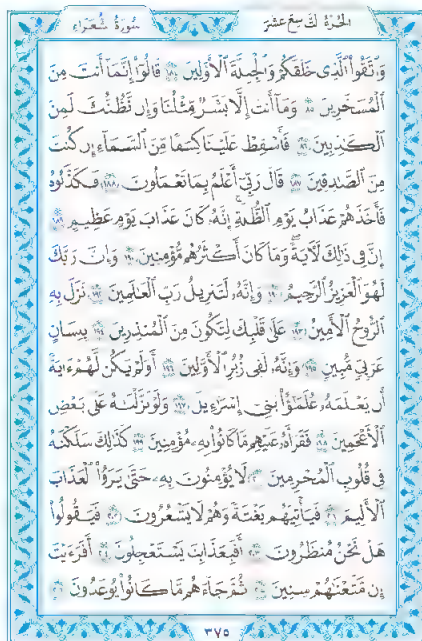 الجزء التاسع عشر
سورة الشعراء
وَاتَّقُوا۟ الَّذِى خَلَقَكُمْ وَالْجِبِلَّةَ الْأَوَّلِينَ ١٨٤ قَالُوٓا۟ إِنَّمَآ أَنتَ مِنَ
الْمُسَحَّرِينَ ١٨٥ وَمَآ أَنتَ إِلَّا بَشَرٌ مِّثْلُنَا وَإِن نَّظُنُّكَ لَمِنَ
الْكَٰذِبِينَ ١٨٦ فَأَسْقِطْ عَلَيْنَا كِسَفًا مِّنَ السَّمَآءِ إِن كُنتَ
مِنَ الصَّٰدِقِينَ ١٨٧ قَالَ رَبِّىٓ أَعْلَمُ بِمَا تَعْمَلُونَ ١٨٨ فَكَذَّبُوهُ
فَأَخَذَهُمْ عَذَابُ يَوْمِ الظُّلَّةِ إِنَّهُۥ كَانَ عَذَابَ يَوْمٍ عَظِيمٍ ١٨٩
إِنَّ فِى ذَٰلِكَ لَءَايَةً وَمَا كَانَ أَكْثَرُهُم مُّؤْمِنِينَ ١٩٠ وَإِنَّ رَبَّكَ
لَهُوَ الْعَزِيزُ الرَّحِيمُ ١٩١ وَإِنَّهُۥ لَتَنزِيلُ رَبِّ الْعَٰلَمِينَ ١٩٢ نَزَلَ بِهِ
الرُّوحُ الْأَمِينُ ١٩٣ عَلَىٰ قَلْبِكَ لِتَكُونَ مِنَ الْمُنذِرِينَ ١٩٤ بِلِسَانٍ
عَرَبِىٍّ مُّبِينٍ ١٩٥ وَإِنَّهُۥ لَفِى زُبُرِ الْأَوَّلِينَ ١٩٦ أَوَلَمْ يَكُن لَّهُمْ ءَايَةً
أَن يَعْلَمَهُۥ عُلَمَٰٓؤُا۟ بَنِىٓ إِسْرَٰٓءِيلَ ١٩٧ وَلَوْ نَزَّلْنَٰهُ عَلَىٰ بَعْضِ
الْأَعْجَمِينَ ١٩٨ فَقَرَأَهُۥ عَلَيْهِم مَّا كَانُوا۟ بِهِۦ مُؤْمِنِينَ ١٩٩ كَذَٰلِكَ سَلَكْنَٰهُ
فِى قُلُوبِ الْمُجْرِمِينَ ٢٠٠ لَا يُؤْمِنُونَ بِهِۦ حَتَّىٰ يَرَوُا۟ الْعَذَابَ
الْأَلِيمَ ٢٠١ فَيَأْتِيَهُم بَغْتَةً وَهُمْ لَا يَشْعُرُونَ ٢٠٢ فَيَقُولُوا۟
هَلْ نَحْنُ مُنظَرُونَ ٢٠٣ أَفَبِعَذَابِنَا يَسْتَعْجِلُونَ ٢٠٤ أَفَرَءَيْتَ
إِن مَّتَّعْنَٰهُمْ سِنِينَ ٢٠٥ ثُمَّ جَآءَهُم مَّا كَانُوا۟ يُوعَدُونَ ٢٠٦
٣٧٥